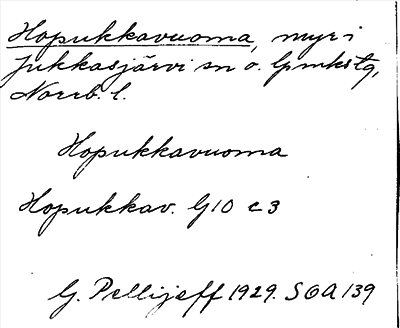 Hopukkavuoma, myr i
Jukkasjärvi sn o. lpmkstg,
Norrb. l.
Hopukkavuoma
Hopukkav. G10 c3
G. Pellijeff 1929. SOA 139